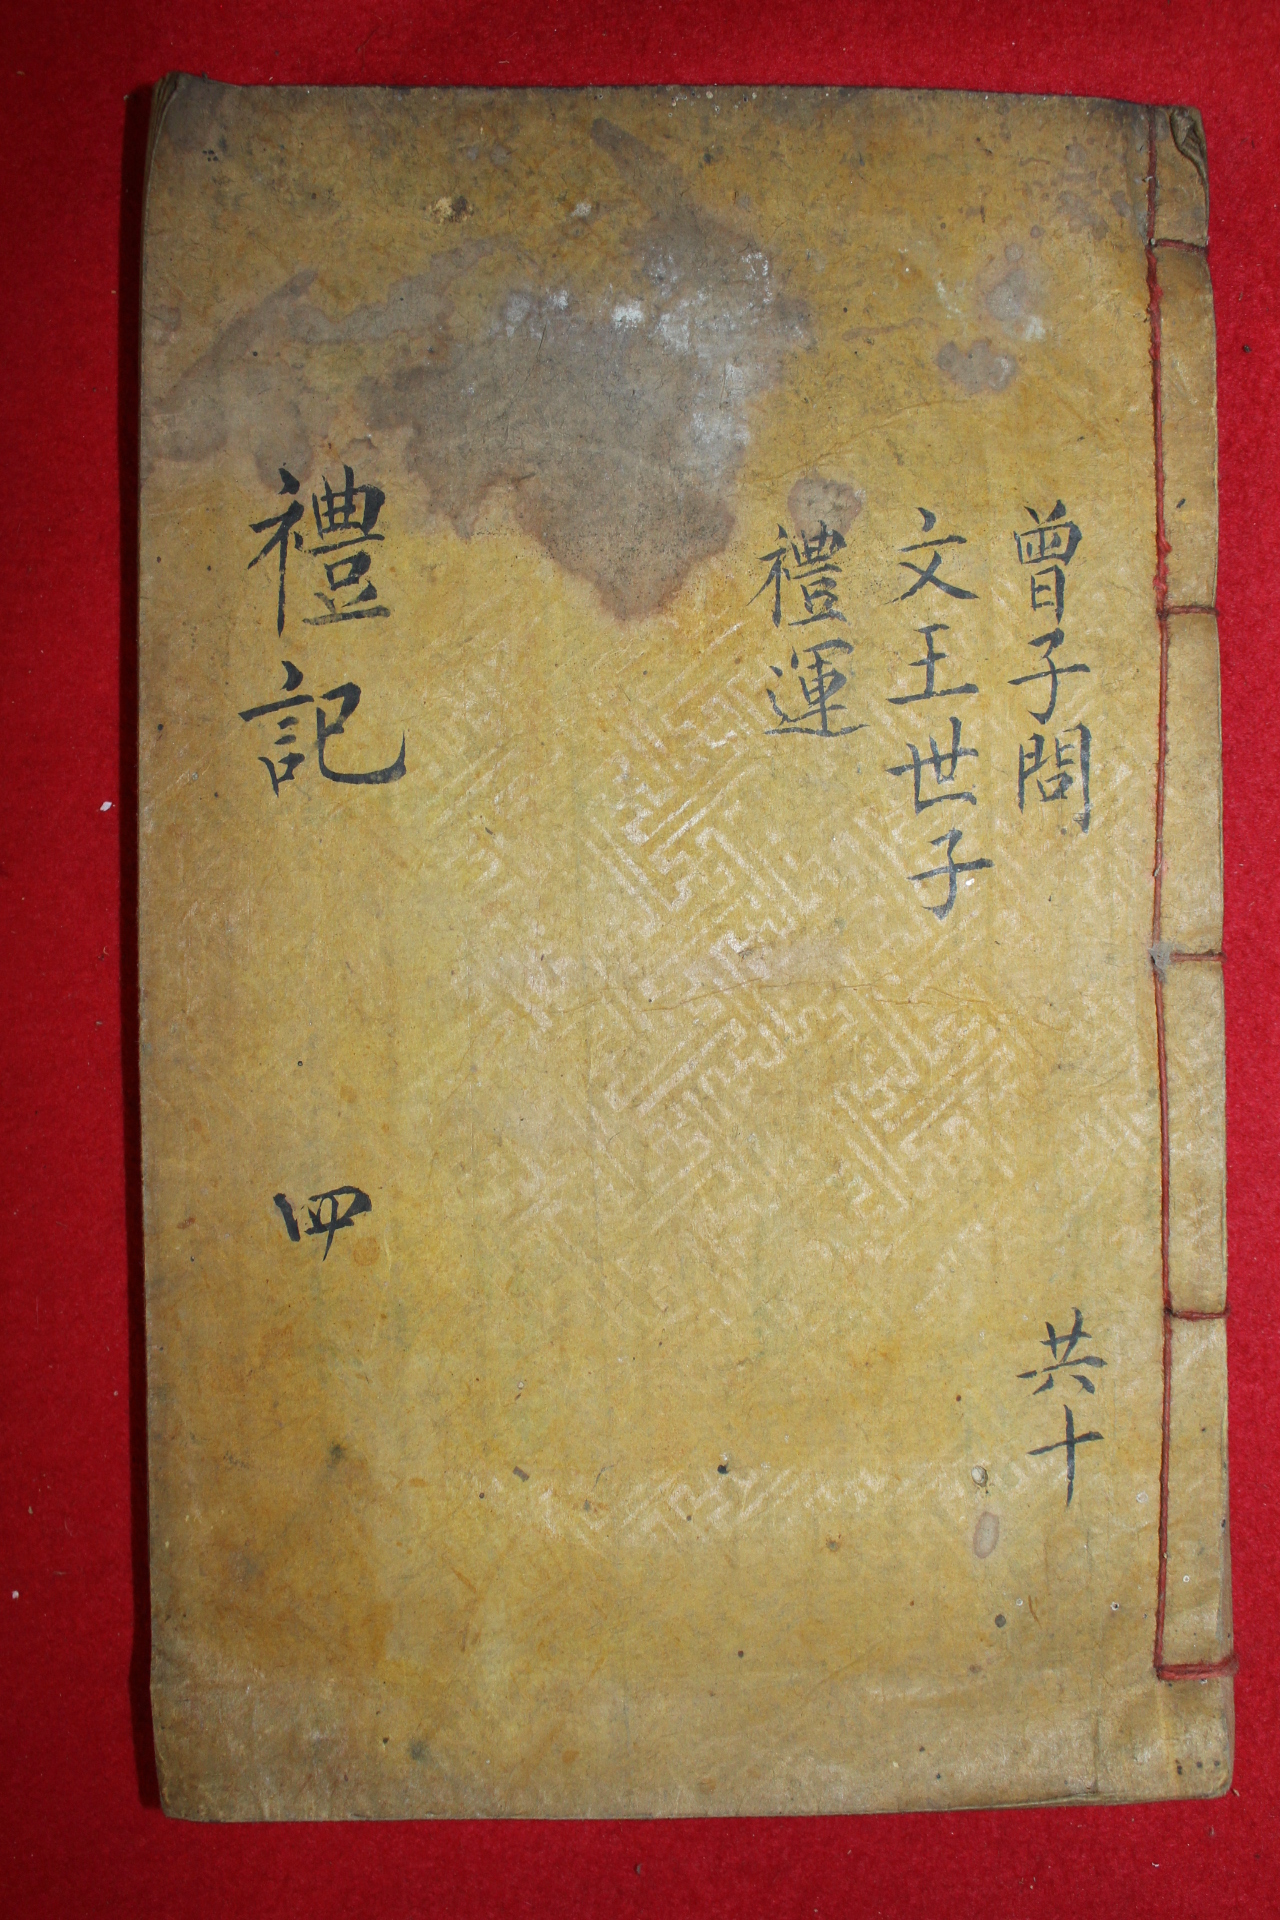 曾子問
文王世子
禮運
共十
禮記
四